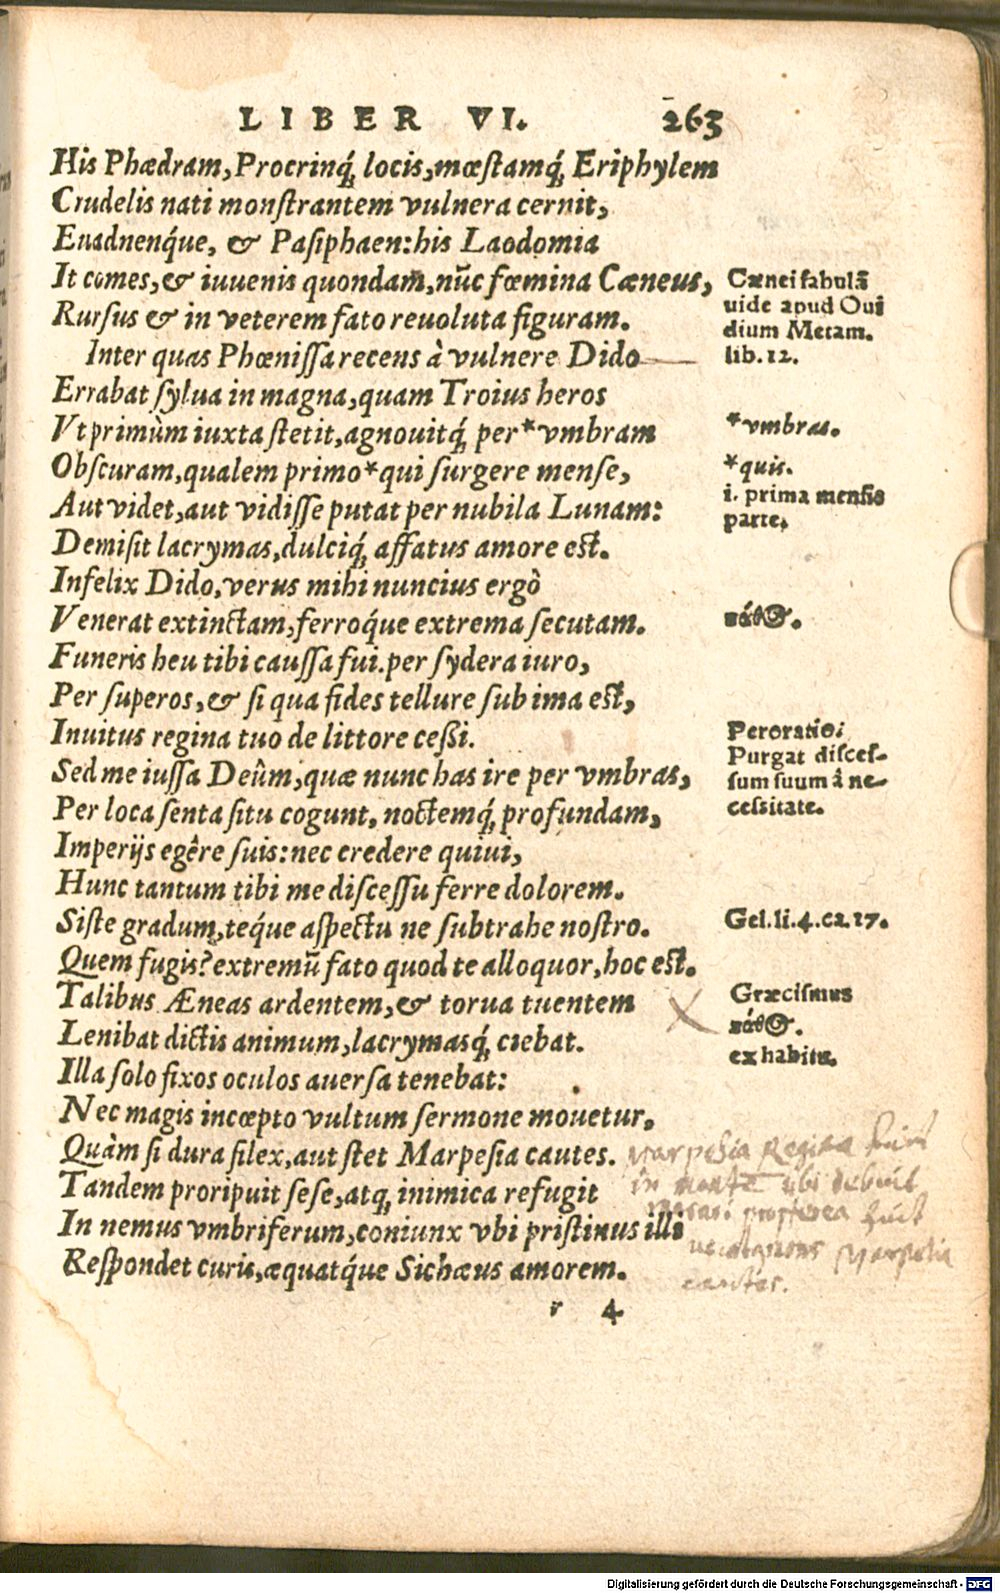 LIBER VI. 263
His Phædram, Procrinq́; locis, mœstamq́; Eriphylem
Crudelis nati monstrantem vulnera cernit,
Euadnenq́ue, & Pasiphaen: his Laodomia
It comes, & iuuenis quondam, nūc fœmina Cæneus,
Rursus & in veterem fato reuoluta figuram.
Inter quas Phœnissa recens à vulnere Dido
Errabat sylua in magna, quam Troius heros
Vt primùm iuxta stetit, agnouitq́; per * vmbram
Obscuram, qualem primo * qui surgere mense,
Aut videt, aut vidisse putat per nubila Lunam:
Demisit lacrymas, dulciq́; affatus amore est.
Infelix Dido, verus mihi nuncius ergò
Venerat extinctam, ferroq́ue extrema secutam.
Funeris heu tibi caussa fui. per sydera iuro,
Per superos, & si qua fides tellure sub ima est,
Inuitus regina tuo de littore cessi.
Sed me iussa Deûm, quæ nunc has ire per vmbras,
Per loca senta situ cogunt, noctemq́; profundam,
Imperijs egêre suis: nec credere quiui,
Hunc tantum tibi me discessu ferre dolorem.
Siste gradum, teq́ue aspectu ne subtrahe nostro.
Quem fugis? extremū fato quod te alloquor, hoc est.
Talibus Æneas ardentem, & torua tuentem
Lenibat dictis animum, lacrymasq́; ciebat.
Illa solo fixos oculos auersa tenebat:
Nec magis incœpto vultum sermone mouetur,
Quàm si dura silex, aut stet Marpesia cautes.
Tandem proripuit sese, atq; inimica refugit
In nemus vmbriferum, coniunx vbi pristinus illi
Respondet curis, æquatq́ue Sichæus amorem.
r 4
Cænei fabulā
uide apud Oui
dium Metam.
lib. 12.
*vmbras.
*quis.
i. prima mensis
parte.
πάθος.
Peroratio:
Purgat disces-
sum suum à ne-
cessitate.
Gel. li. 4. ca. 17.
Græcismus
πάθος.
ex habitu.
Marpesia Regina fuit
in monte ubi
propterea fuit
Marpesia
cautes.
Digitalisierung gefördert durch die Deutsche Forschungsgemeinschaft - DFG